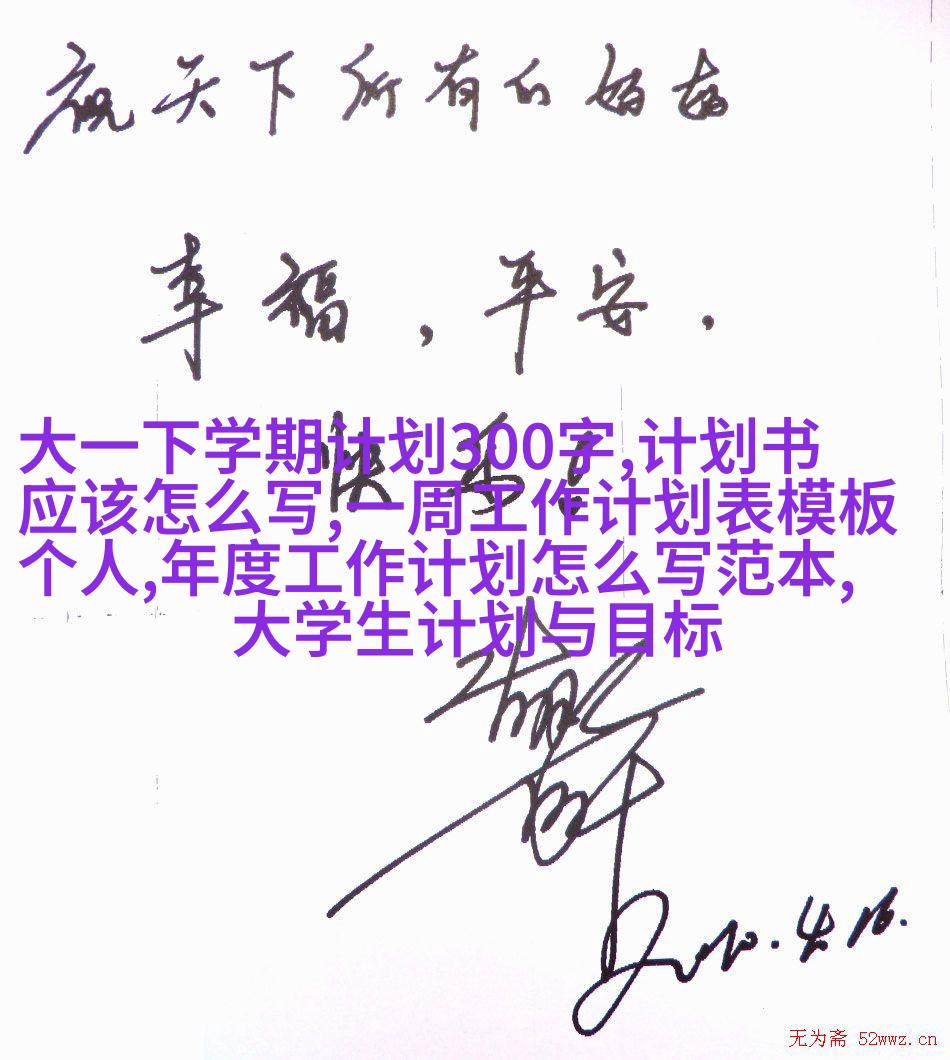 祝天下所有的妈妈
幸福，平安，
快乐！
大一下学期计划300字,计划书
应该怎么写,一周工作计划表模板
个人,年度工作计划怎么写范本,
大学生计划与目标
2010.4.16.
无为斋 52wwz.cn